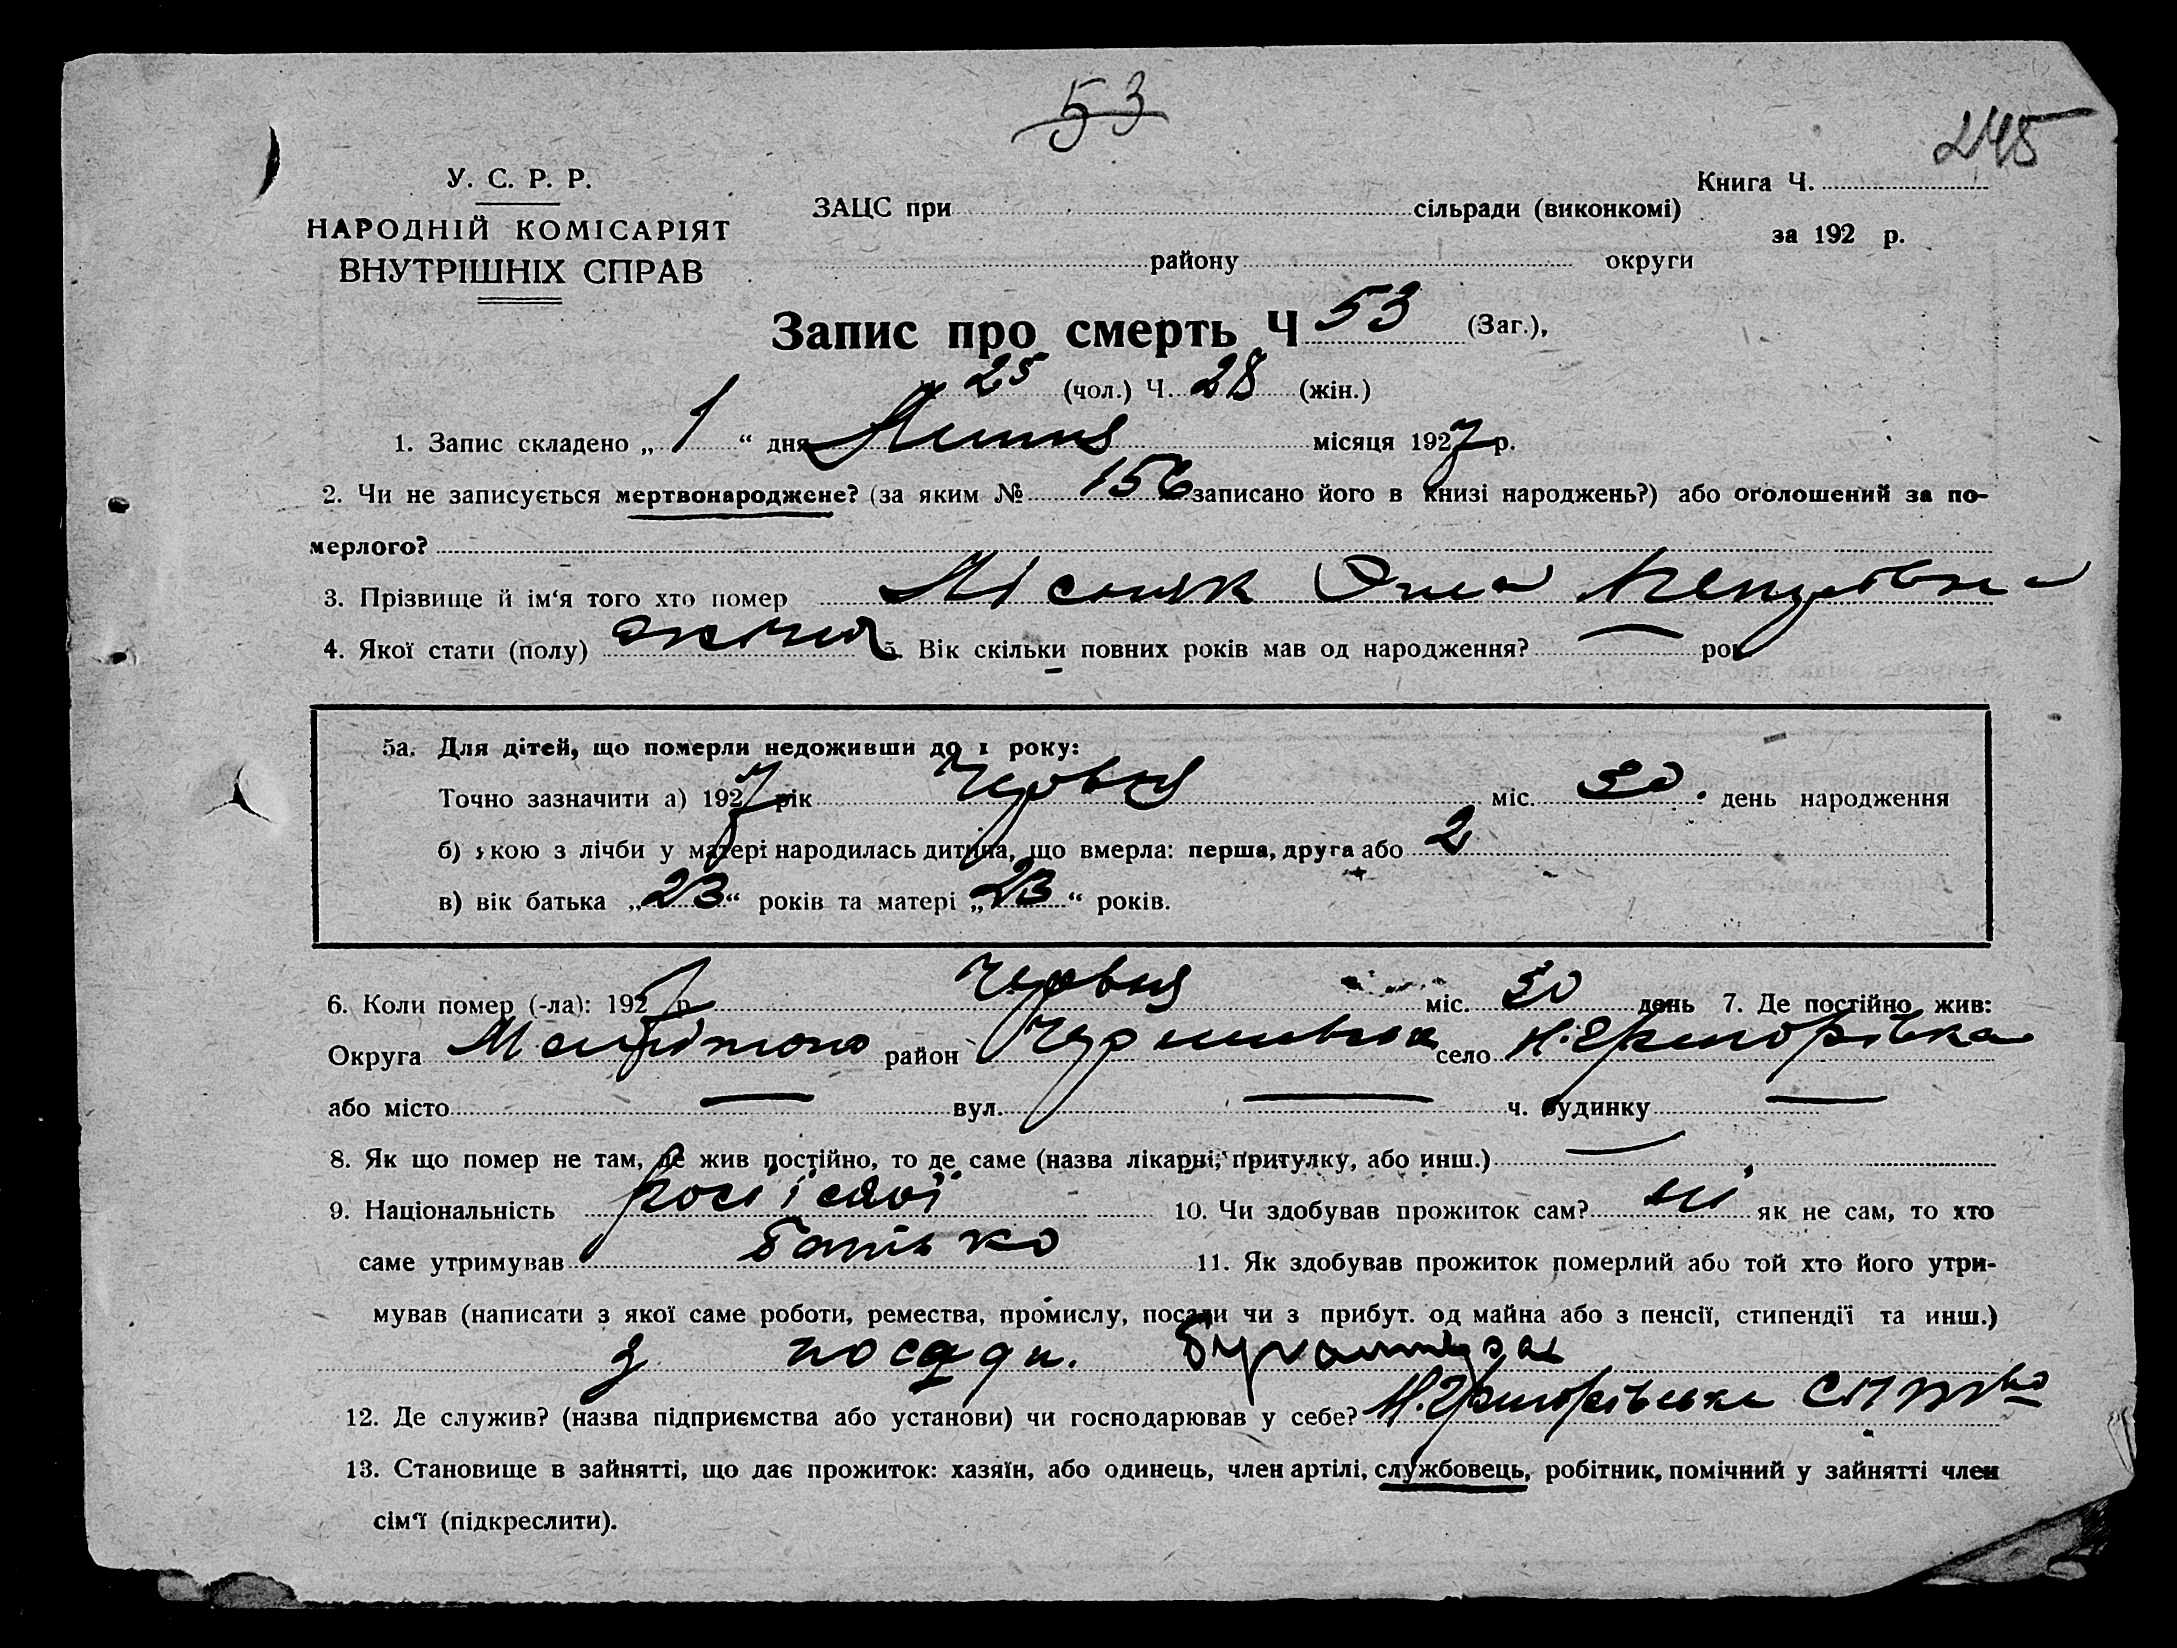 53
245
У. С. Р. Р.
НАРОДНІЙ КОМІСАРІЯТ
ВНУТРІШНІХ СПРАВ
ЗАЦС при сільради (виконкомі)
району округи
Книга Ч.
за 192 р.
Запис про смерть Ч 53 (Заг.),
25 (чол.) Ч. 28 (жін.)
1. Запис складено „ 1 “ дня Липня місяця 1927 р.
2. Чи не записується мертвонароджене? (за яким № 156 записано його в книзі народжень?) або оголошений за по-
мерлого?
3. Прізвище й ім‘я того хто помер
4. Якої стати (полу) жіноча 5. Вік скільки повних років мав од народження? — рок.
5а. Для дітей, що померли недоживши до 1 року:
Точно зазначити а) 1927 рік Червня міс. 30 день народження
б) якою з лічби у матері народилась дитина, що вмерла: перша, друга або 2
в) вік батька „23“ років та матері „23“ років.
6. Коли помер (-ла): 1927 р. Червня міс. 30 день 7. Де постійно жив:
Округа район село Н. Григорівка
або місто — вул. — ч. будинку —
8. Як що помер не там, де жив постійно, то де саме (назва лікарні, притулку, або инш.) —
9. Національність російської 10. Чи здобував прожиток сам? ні як не сам, то хто
саме утримував батько 11. Як здобував прожиток померлий або той хто його утри-
мував (написати з якої саме роботи, ремества, промислу, посади чи з прибут. од майна або з пенсії, стипендії та инш.)
з посади. бухгалтера
12. Де служив? (назва підприємства або установи) чи господарював у себе? Н. Григорівське
13. Становище в зайнятті, що дає прожиток: хазяїн, або одинець, член артілі, службовець, робітник, помічний у зайнятті член
сім‘ї (підкреслити).